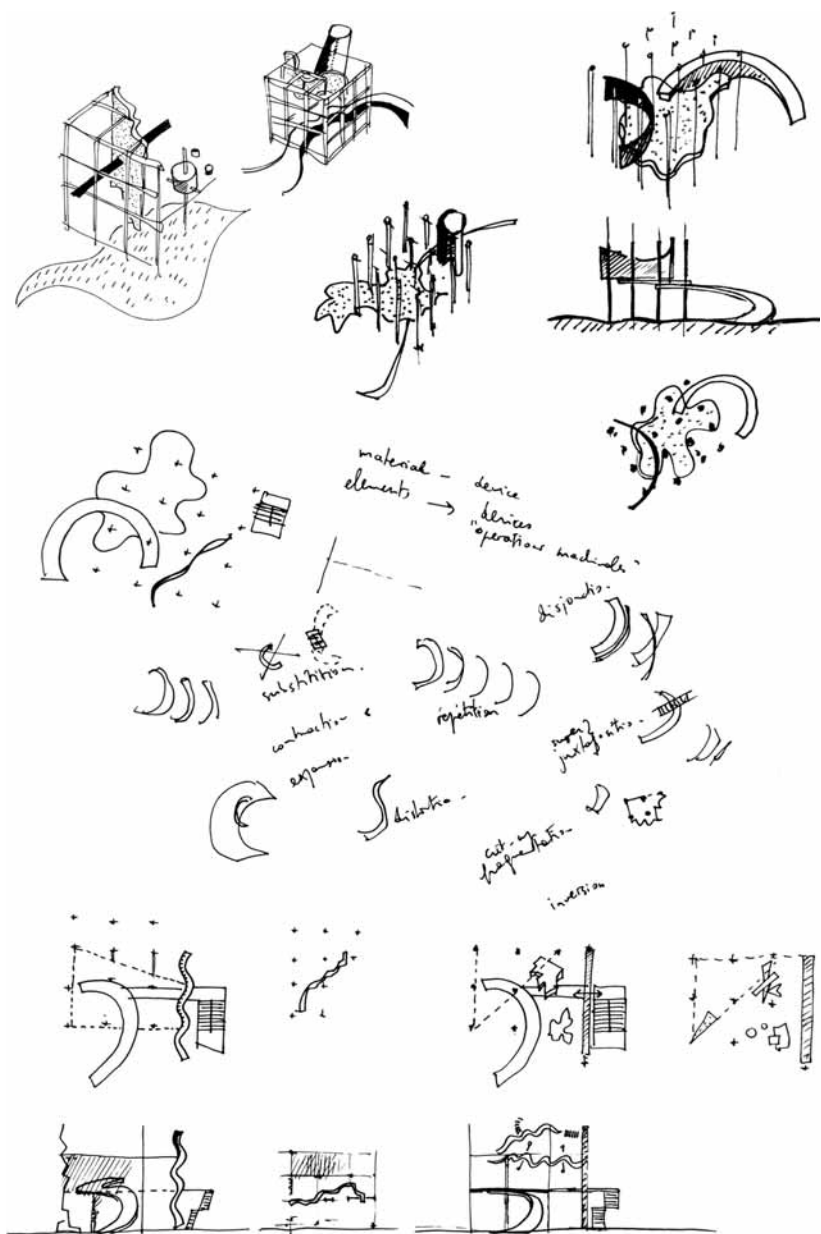 material - device
elements → devices
"operations machinales"
disjonctio-
substitition.
répétition
contraction &
expansio-
super }
juxtaposition-
distortio-
cut-up
fragmentation-
inversion